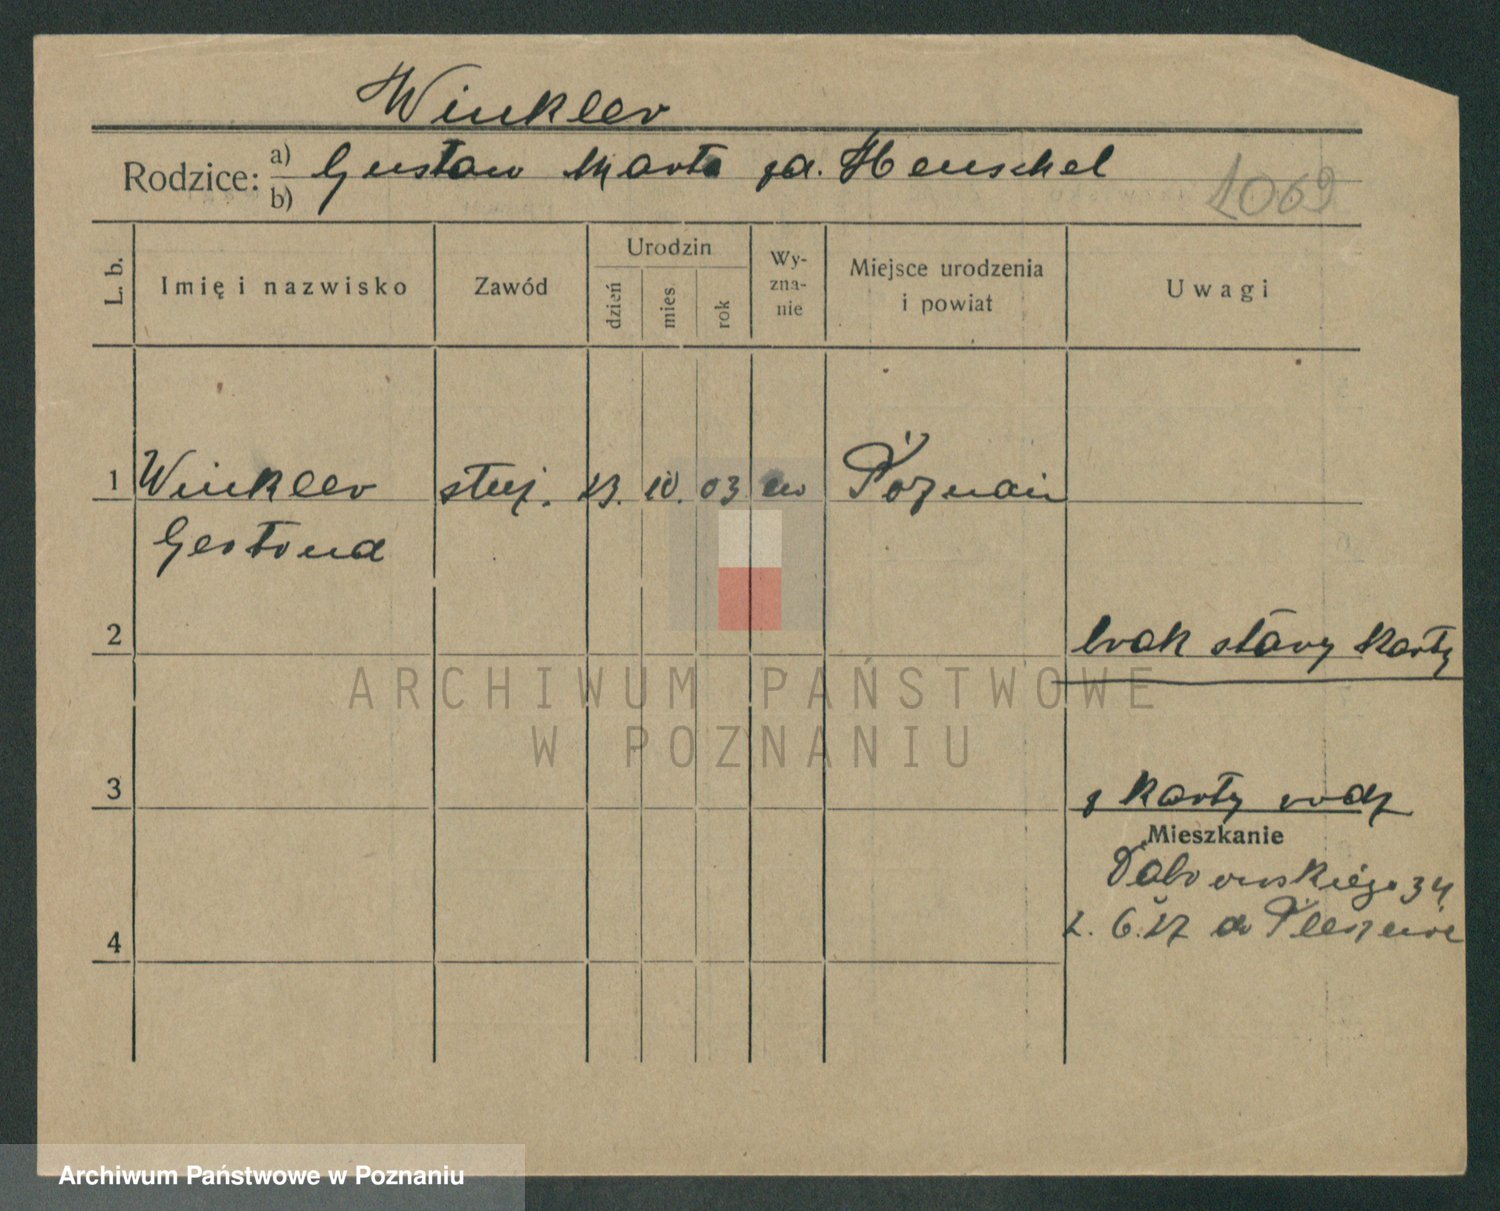 Winkler
Rodzice: a) Gustaw Marta zd. Henschel
b)
1069
L. b. Imię i nazwisko Zawód Urodzin dzień mies. rok Wy-zna-nie Miejsce urodzenia i powiat Uwagi
1 Winkler służ. 13. 10. 03 ew Poznań
Gertruda
2 brak starej karty
3 z karty rodz
Mieszkanie
Dąbrowskiego 34
4 2. 6. 27 do Pleszewie
ARCHIWUM PAŃSTWOWE
W POZNANIU
Archiwum Państwowe w Poznaniu